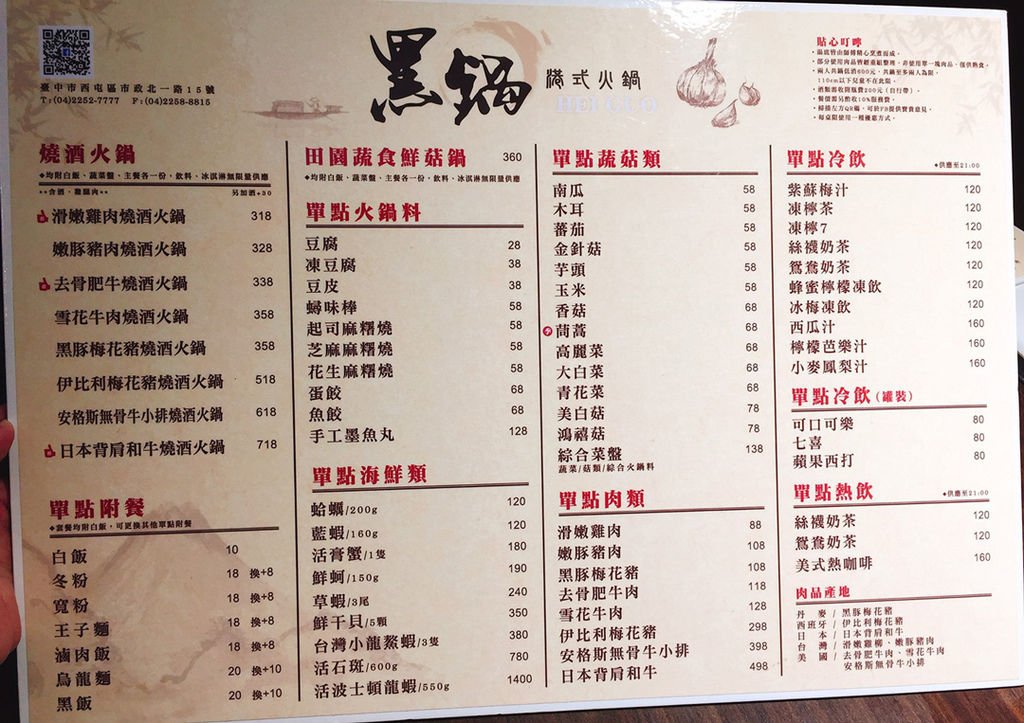 黑鍋 港式火鍋
HEI GUO
臺中市西屯區市政北一路15號
T:(04)2252-7777 F:(04)2258-8815
貼心叮嚀
・湯底皆由師傅精心烹煮而成。
・部分使用肉品皆經重組整理，非使用單一塊肉品，僅供熟食。
・兩人共鍋低消600元，共鍋至多兩人為限，
110cm以下兒童不在此限。
・酒類需收開瓶費200元(自行帶)。
・餐價需另酌收10%服務費。
・掃描左方QR碼，可於FB提供寶貴意見。
・每桌限使用一種優惠方式。
燒酒火鍋
◆均附白飯、蔬菜盤、主餐各一份，飲料、冰淇淋無限量供應
**含酒，雞腿肉** 另加酒+30
滑嫩雞肉燒酒火鍋 318
嫩豚豬肉燒酒火鍋 328
去骨肥牛燒酒火鍋 338
雪花牛肉燒酒火鍋 358
黑豚梅花豬燒酒火鍋 358
伊比利梅花豬燒酒火鍋 518
安格斯無骨牛小排燒酒火鍋 618
日本背肩和牛燒酒火鍋 718
單點附餐
◆套餐均附白飯，可更換其他單點附餐
白飯 10
冬粉 18 換+8
寬粉 18 換+8
王子麵 18 換+8
滷肉飯 18 換+8
烏龍麵 20 換+10
黑飯 20 換+10
田園蔬食鮮菇鍋 360
◆均附白飯、蔬菜盤、主餐各一份，飲料、冰淇淋無限量供應
單點火鍋料
豆腐 28
凍豆腐 38
豆皮 38
蟳味棒 58
起司麻糬燒 58
芝麻麻糬燒 58
花生麻糬燒 58
蛋餃 68
魚餃 68
手工墨魚丸 128
單點海鮮類
蛤蠣/200g 120
藍蝦/160g 120
活膏蟹/1隻 180
鮮蚵/150g 190
草蝦/3尾 240
鮮干貝/5顆 350
台灣小龍蝦/3隻 380
活石斑/600g 780
活波士頓龍蝦/550g 1400
單點蔬菇類
南瓜 58
木耳 58
蕃茄 58
金針菇 58
芋頭 58
玉米 58
香菇 68
茼蒿 68
高麗菜 68
大白菜 68
青花菜 68
美白菇 78
鴻禧菇 78
綜合菜盤 138
蔬菜/菇類/綜合火鍋料
單點肉類
滑嫩雞肉 88
嫩豚豬肉 108
黑豚梅花豬 108
去骨肥牛肉 118
雪花牛肉 128
伊比利梅花豬 298
安格斯無骨牛小排 398
日本背肩和牛 498
單點冷飲 ◆供應至21:00
紫蘇梅汁 120
凍檸茶 120
凍檸7 120
絲襪奶茶 120
鴛鴦奶茶 120
蜂蜜檸檬凍飲 120
冰梅凍飲 120
西瓜汁 160
檸檬芭樂汁 160
小麥鳳梨汁 160
單點冷飲(罐裝)
可口可樂 80
七喜 80
蘋果西打 80
單點熱飲 ◆供應至21:00
絲襪奶茶 120
鴛鴦奶茶 120
美式熱咖啡 160
肉品產地
丹麥/黑豚梅花豬
西班牙/伊比利梅花豬
日本/日本背肩和牛
台灣/滑嫩雞柳、嫩豚豬肉
美國/去骨肥牛肉、雪花牛肉
安格斯無骨牛小排